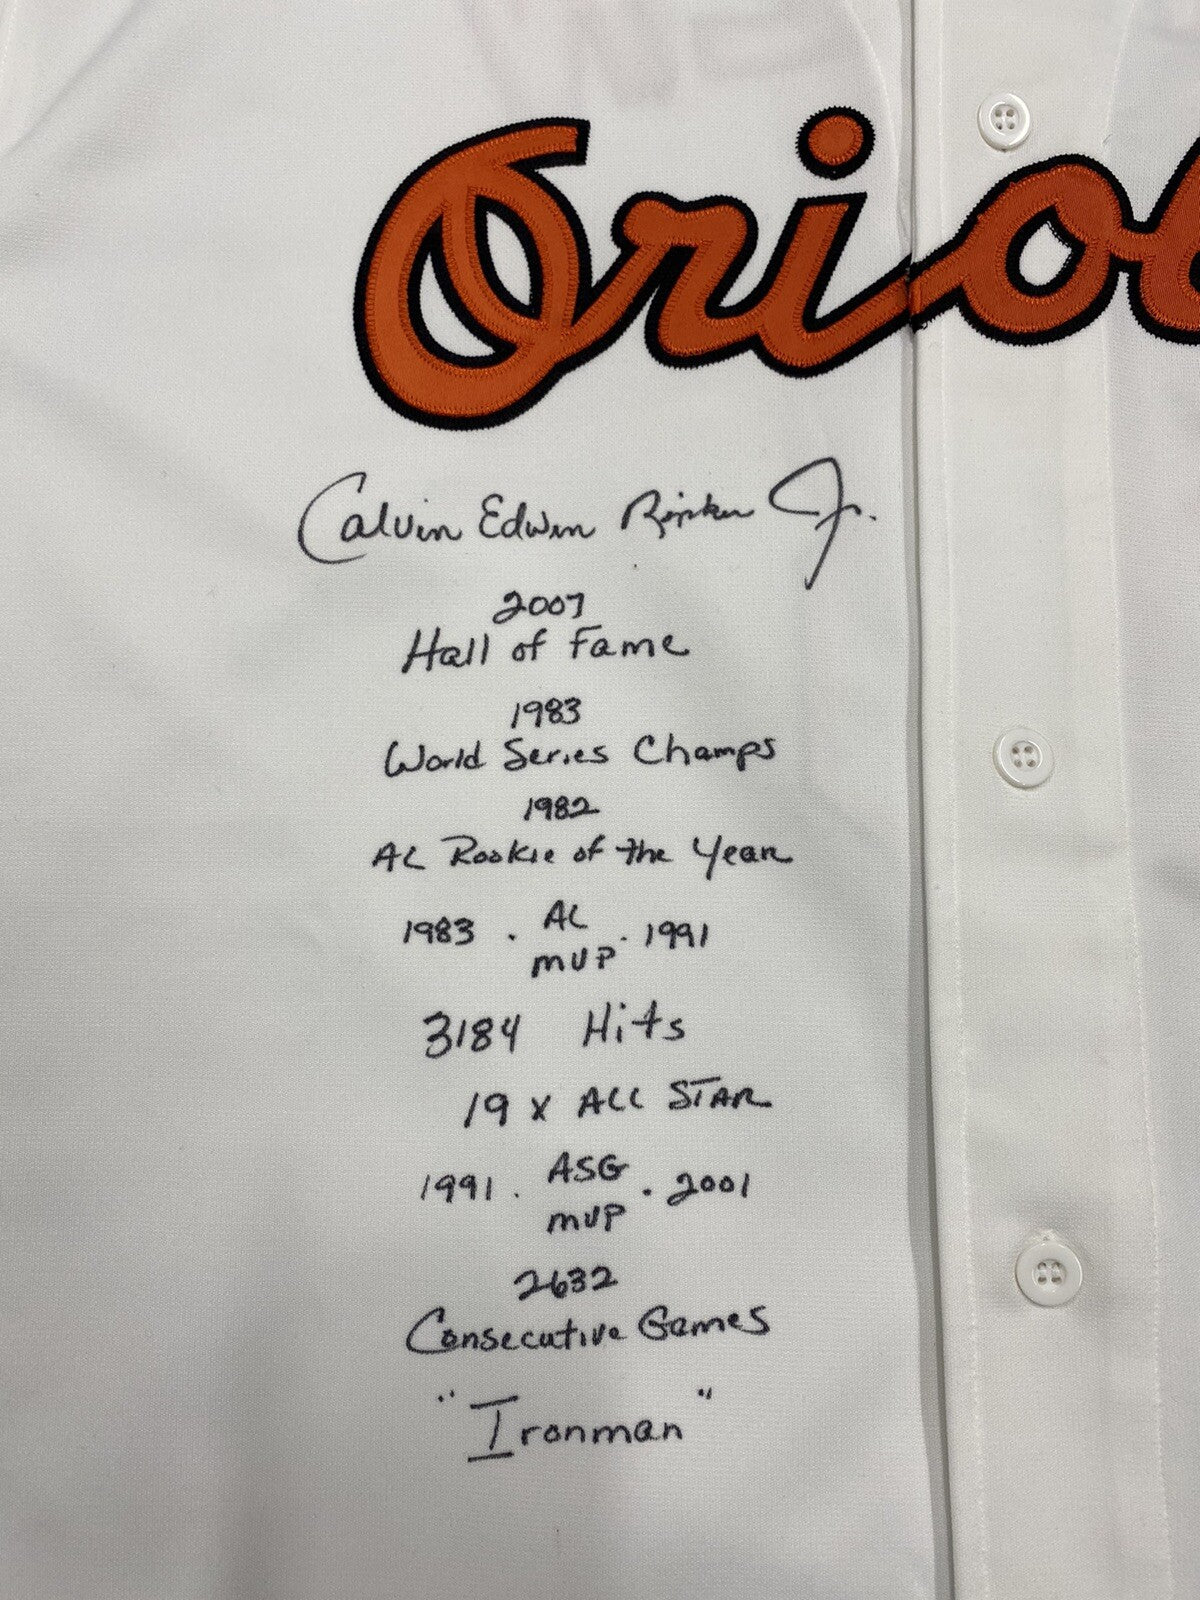 Orio
Calvin Edwin Ripken Jr.
2007
Hall of Fame
1983
World Series Champs
1982
AL Rookie of the Year
1983 . AL MVP . 1991
3184 Hits
19 x ALL STAR
1991 . ASG MVP . 2001
2632
Consecutive Games
"Ironman"